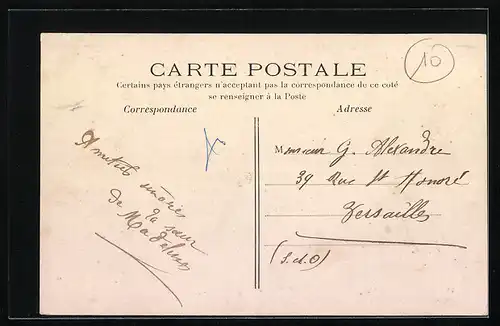 10
CARTE POSTALE
Certains pays étrangers n'acceptant pas la correspondance de ce coté
se renseigner à la Poste
Correspondance
Adresse
Amitiés
la sœur
de
Monsieur G. Alexandre
39 Rue St Honoré
Versailles
(S.&O)